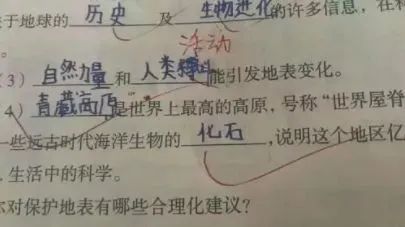 于地球的 历史 及 生物进化的许多信息，在
。
活动
3）自然力量和人类 能引发地表变化。
4）青藏高原是世界上最高的高原，号称“世界屋脊
一些远古时代海洋生物的 化石 ，说明这个地区亿
．生活中的科学。
对保护地表有哪些合理化建议？